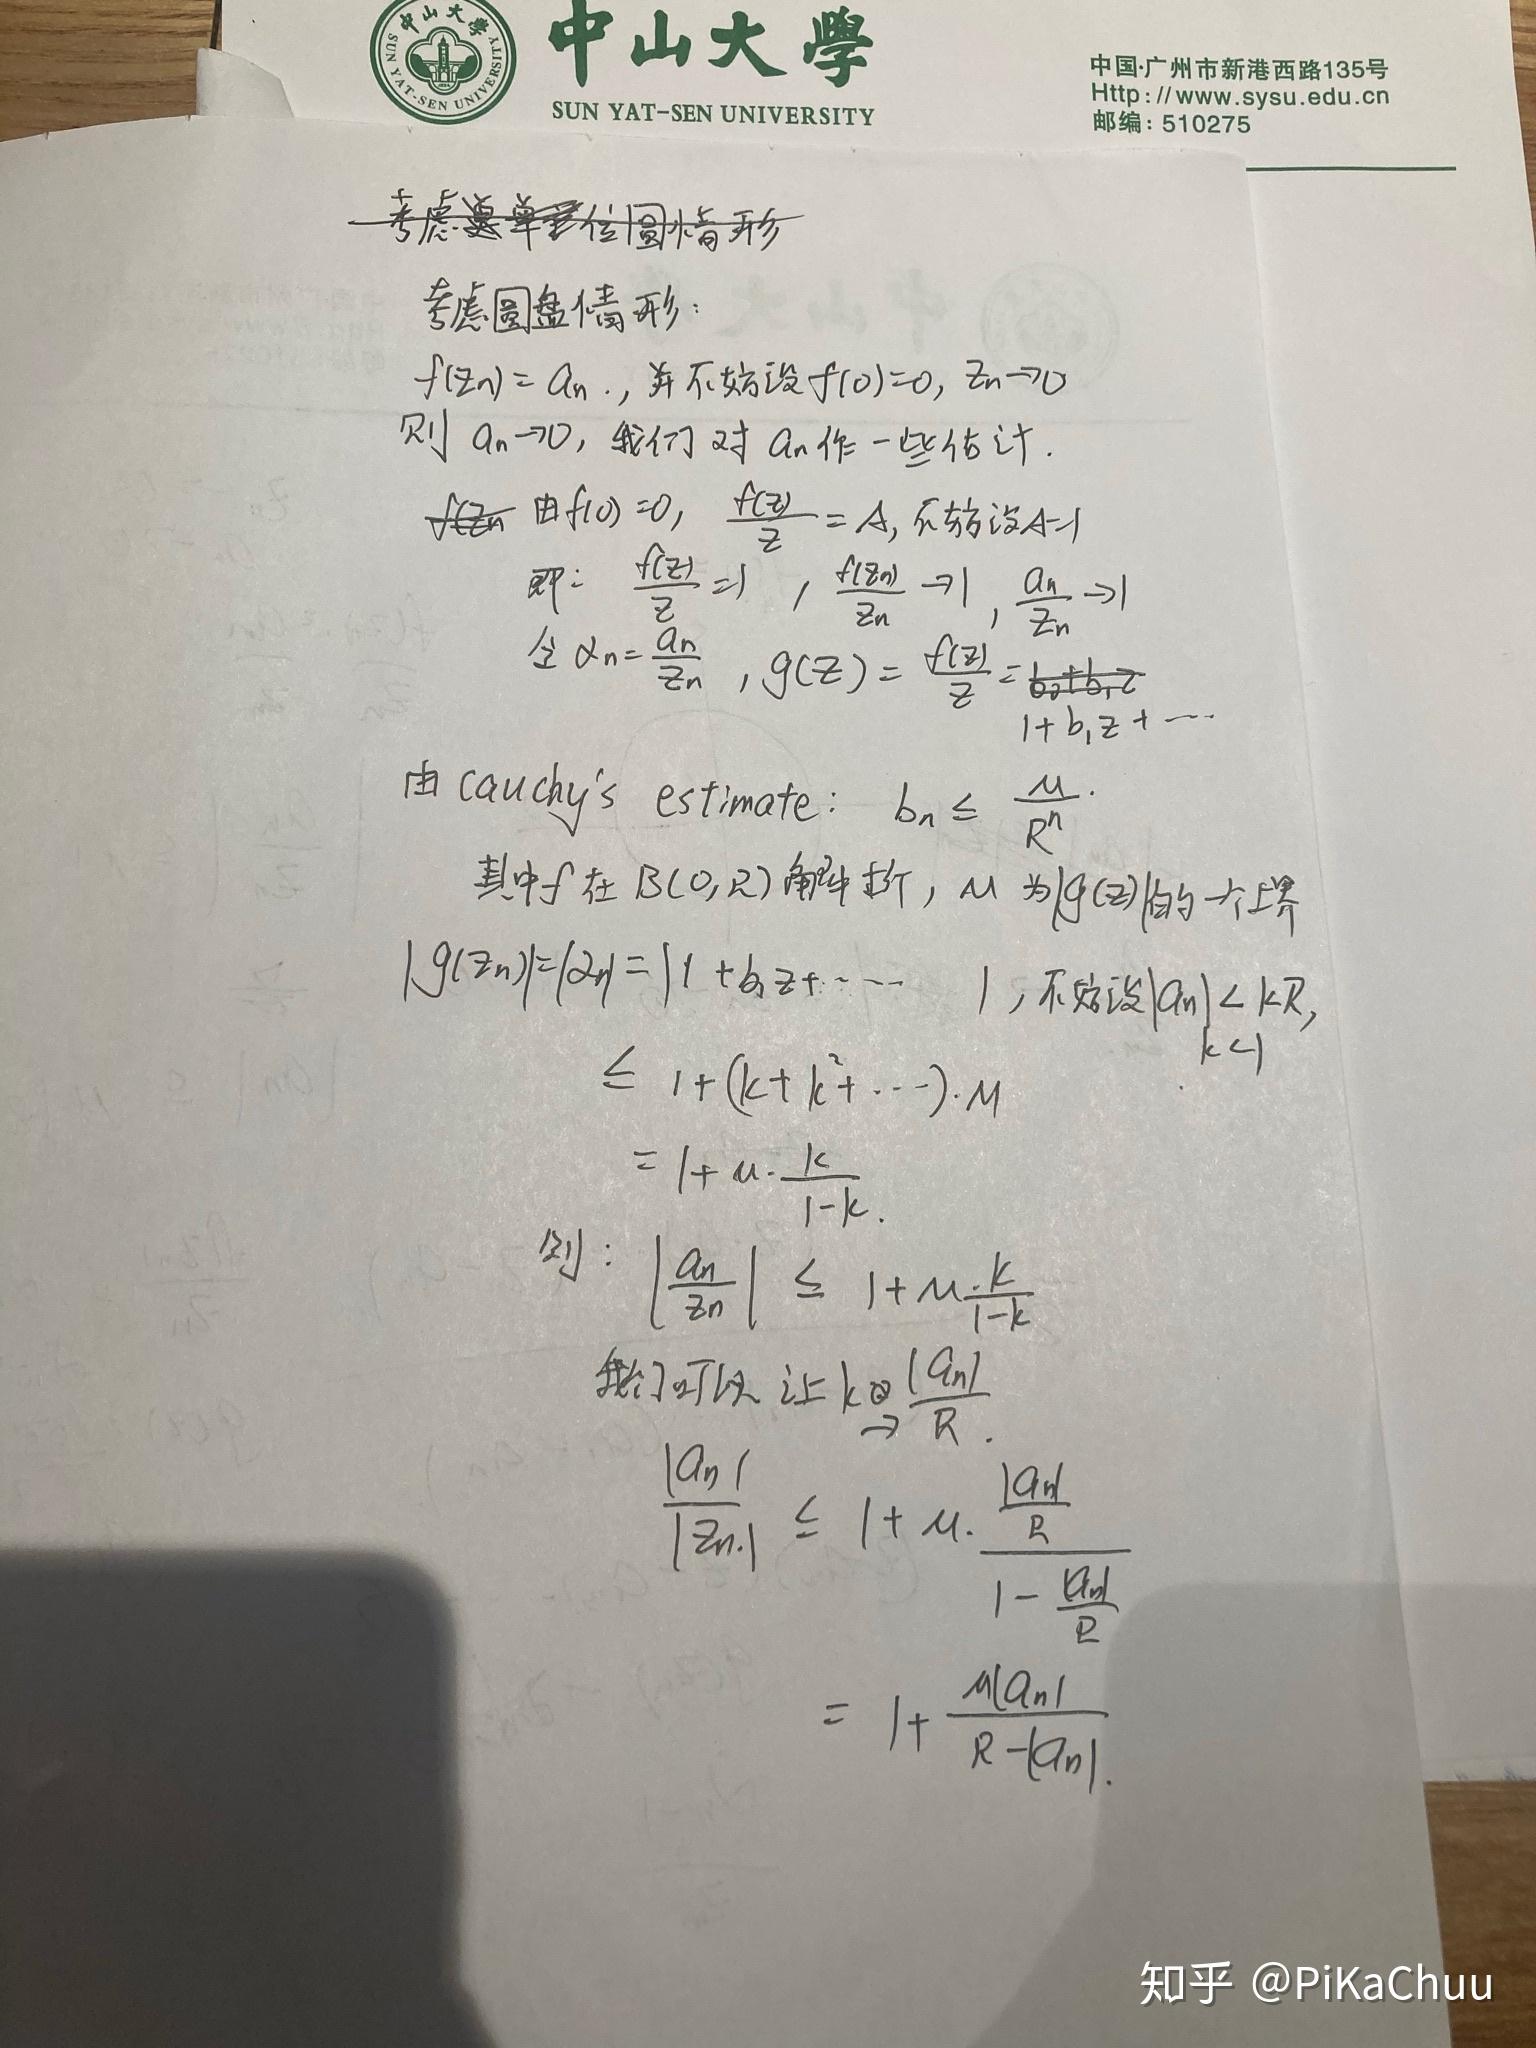 中山大學
SUN YAT-SEN UNIVERSITY
中山大學
SUN YAT-SEN UNIVERSITY
中国·广州市新港西路135号
Http://www.sysu.edu.cn
邮编: 510275
考虑单位圆情形
考虑圆盘情形:
f(zn) = an ., 并不妨设f(0)=0, zn→0
则 an→0, 我们对 an作一些估计.
f(zn 由f(0)=0, f(z)/z = A, 不妨设A=1
即: f(z)/z =1 , f(zn)/zn →1 , an/zn →1
令 αn = an/zn , g(z) = f(z)/z = b0+b1z
1+b1z+···
由 cauchy's estimate: bn ≤ M/R^n .
其中f在 B(0,R) 解析, M 为|g(z)|的一个上界
|g(zn)|=|αn|=|1+b1z+······ |, 不妨设|an|<kR,
k<1
≤ 1+(k+k²+···)·M
= 1+M·k/(1-k).
则: |an/zn| ≤ 1+M·k/(1-k)
我们可以让 k → |an|/R .
|an|/|zn.| ≤ 1+M· (|an|/R)/(1-|an|/R)
= 1+ M|an|/(R-|an|).
知乎 @PiKaChuu